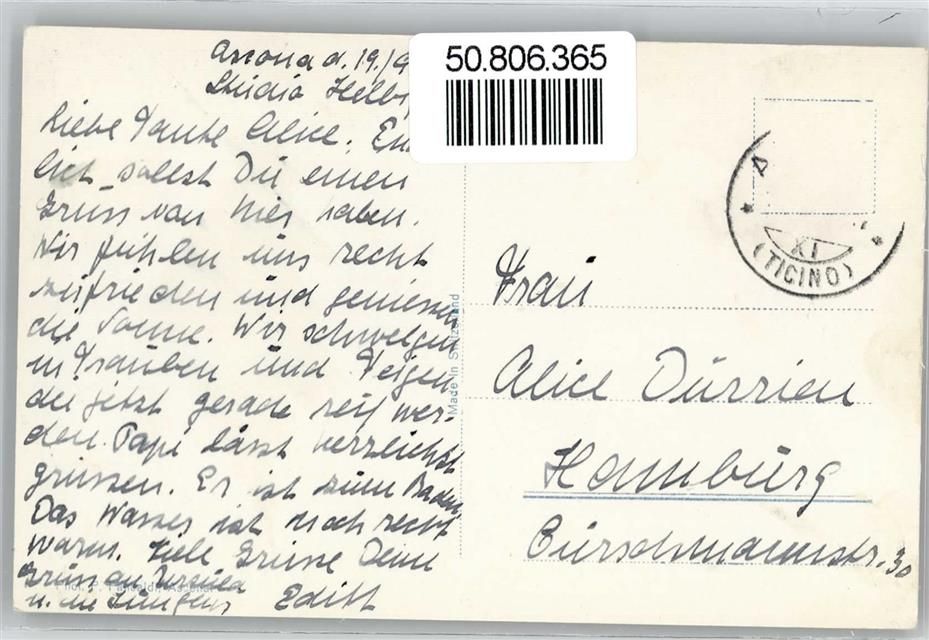 50.806.365
Ascona d. 19./9
Studio
Liebe Tante Alice. En
lich sollst Du einen
Gruss von hier haben.
Wir fühlen uns recht
zufrieden und geniessen
die Sonne. Wir schwelgen
in Trauben und Feigen
die jetzt gerade reif wer-
den. Papi lässt herzlichst
grüssen. Er ist zum Baden
Das Wasser ist noch recht
warm. Viele Grüsse Deine
Gruss an Ursula
u. die Jungens Edith
Made in Switzerland
Ascona
XI
(TICINO)
Frau
Alice Dürrien
Hamburg
30